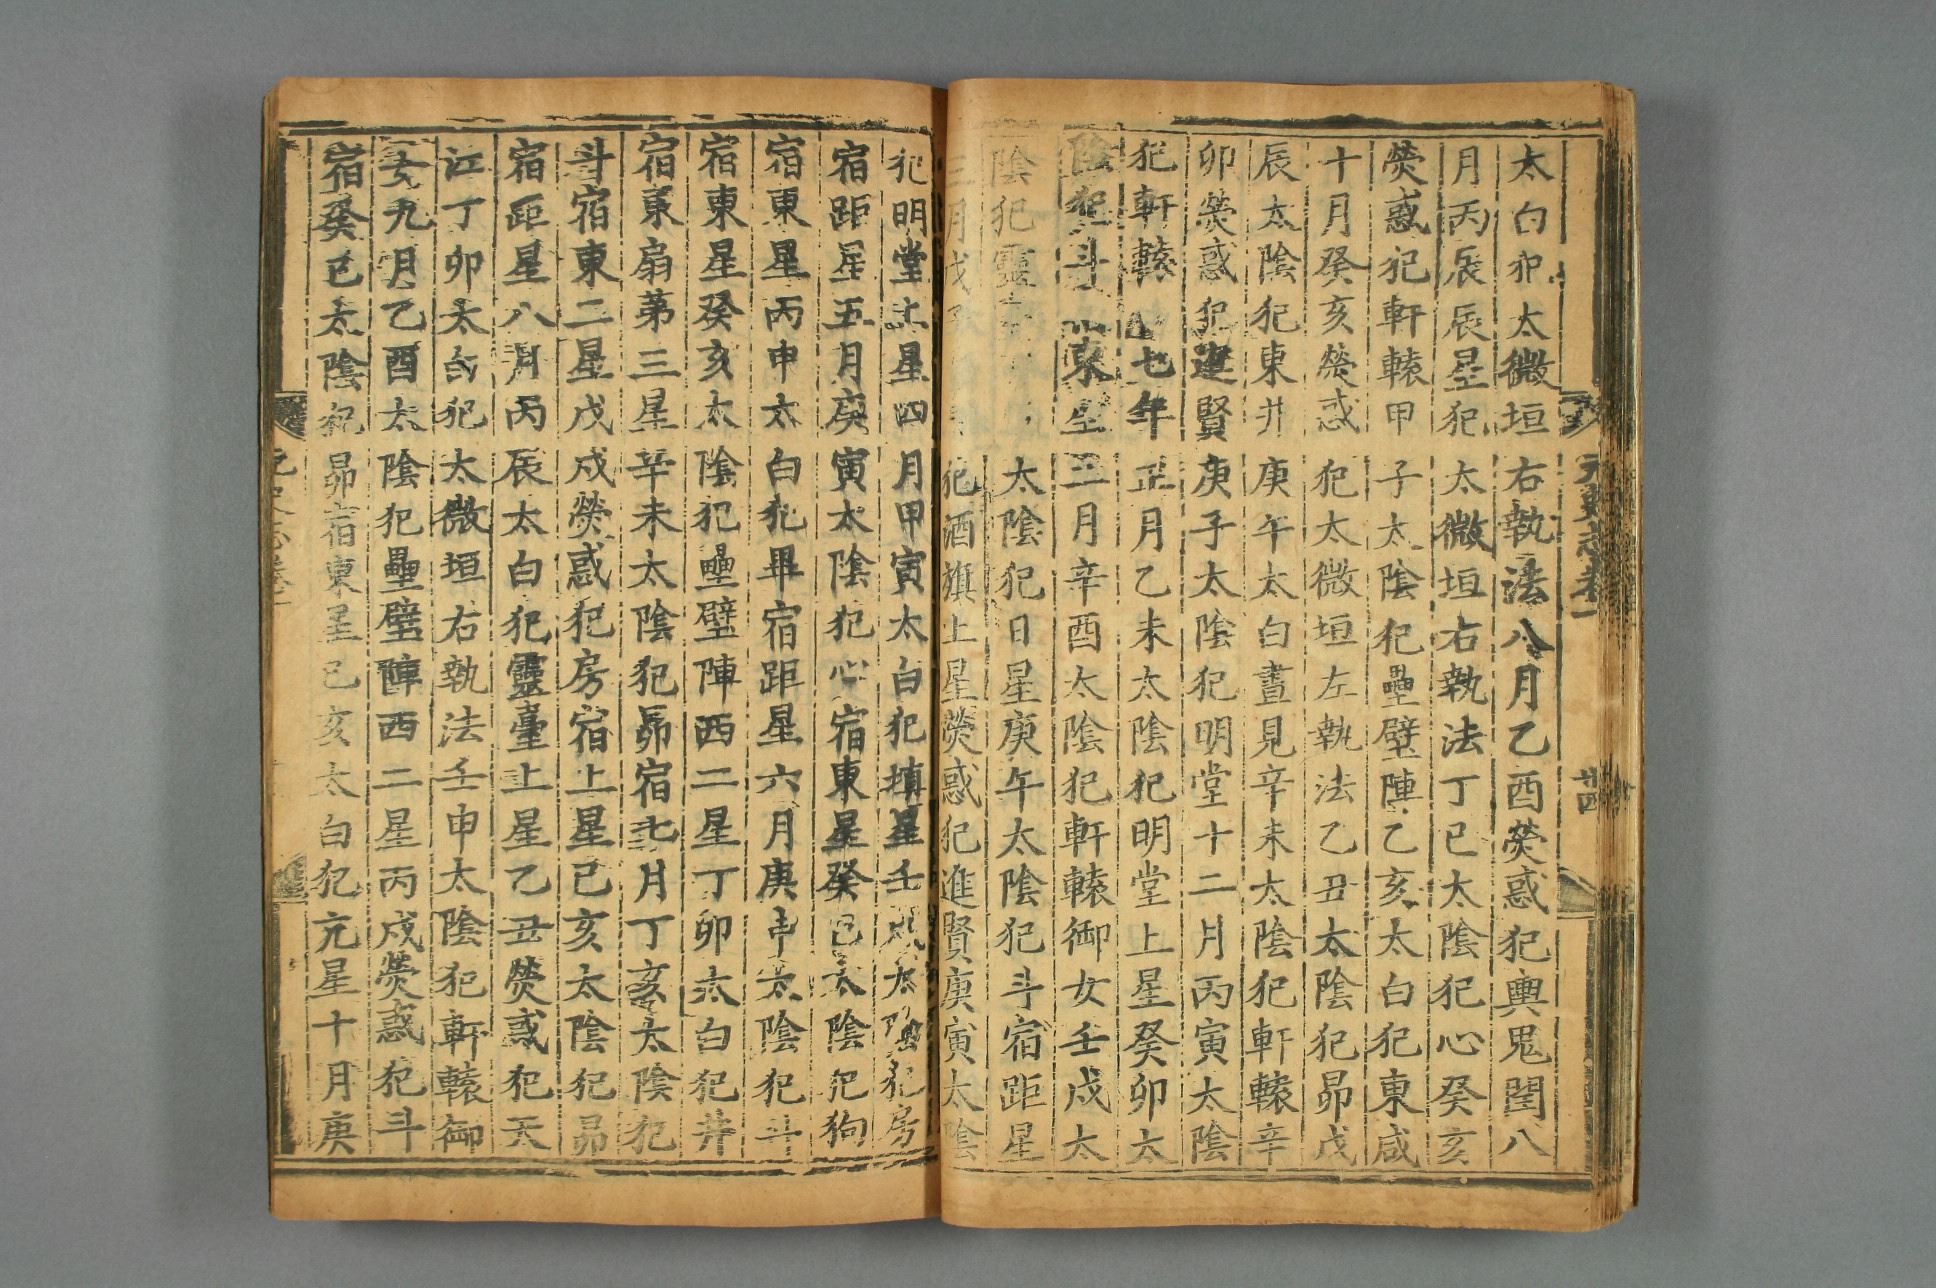 太白犯太微垣右執法八月乙酉熒惑犯輿鬼閏八
月丙辰辰星犯太微垣右執法丁巳太陰犯心癸亥
熒惑犯軒轅甲子太陰犯壘壁陣乙亥太白犯東咸
十月癸亥熒惑犯太微垣左執法乙丑太陰犯昴戊
辰太陰犯東井庚午太白晝見辛未太陰犯軒轅辛
卯熒惑犯進賢庚子太陰犯明堂十二月丙寅太陰
犯軒轅七年正月乙未太陰犯明堂上星癸卯太
陰犯斗東星二月辛酉太陰犯軒轅御女壬戌太
陰犯靈太陰犯日星庚午太陰犯斗宿距星
三月戊犯酒旗上星熒惑犯進賢庚寅太陰
犯明堂上星四月甲寅太白犯填星壬戌太陰犯房
宿距星五月庚寅太陰犯心宿東星癸巳太陰犯狗
宿東星丙申太白犯畢宿距星六月庚申太陰犯斗
宿東星癸亥太陰犯壘壁陣西二星丁卯太白犯井
宿東扇第三星辛未太陰犯昴宿七月丁亥太陰犯
斗宿東二星戊戌熒惑犯房宿上星己亥太陰犯昴
宿距星八月丙辰太白犯靈臺上星乙丑熒惑犯天
江丁卯太白犯太微垣右執法壬申太陰犯軒轅御
女九月乙酉太陰犯壘壁陣西二星丙戌熒惑犯斗
宿癸巳太陰犯昴宿東星己亥太白犯亢星十月庚
元史志卷一
廿四